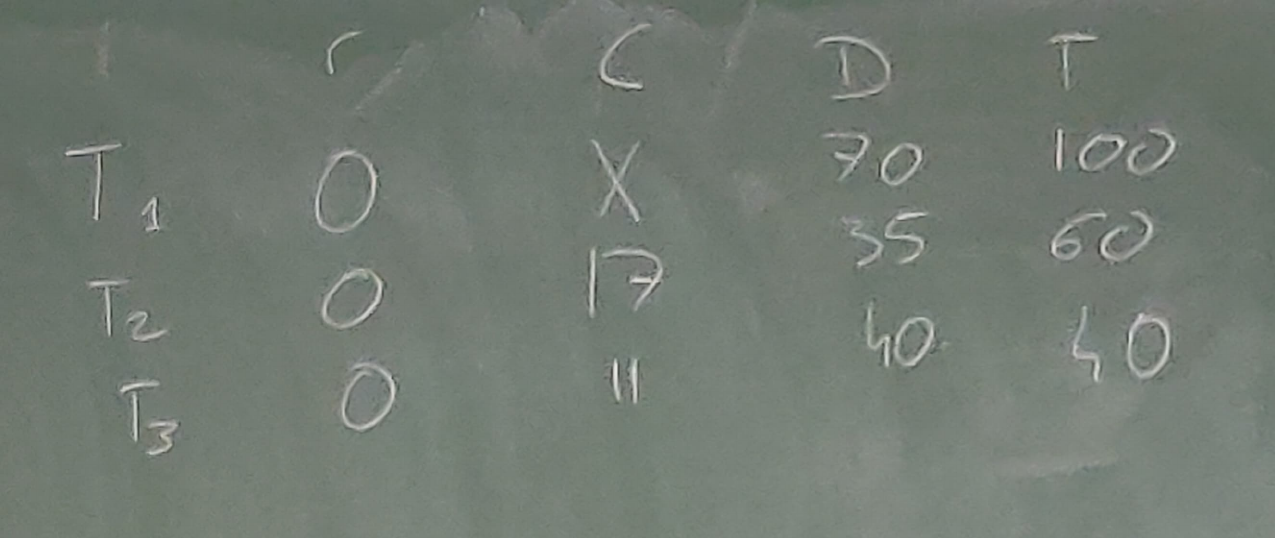 r C D T
T1 0 X 70 100
T2 0 17 35 60
T3 0 11 40 40